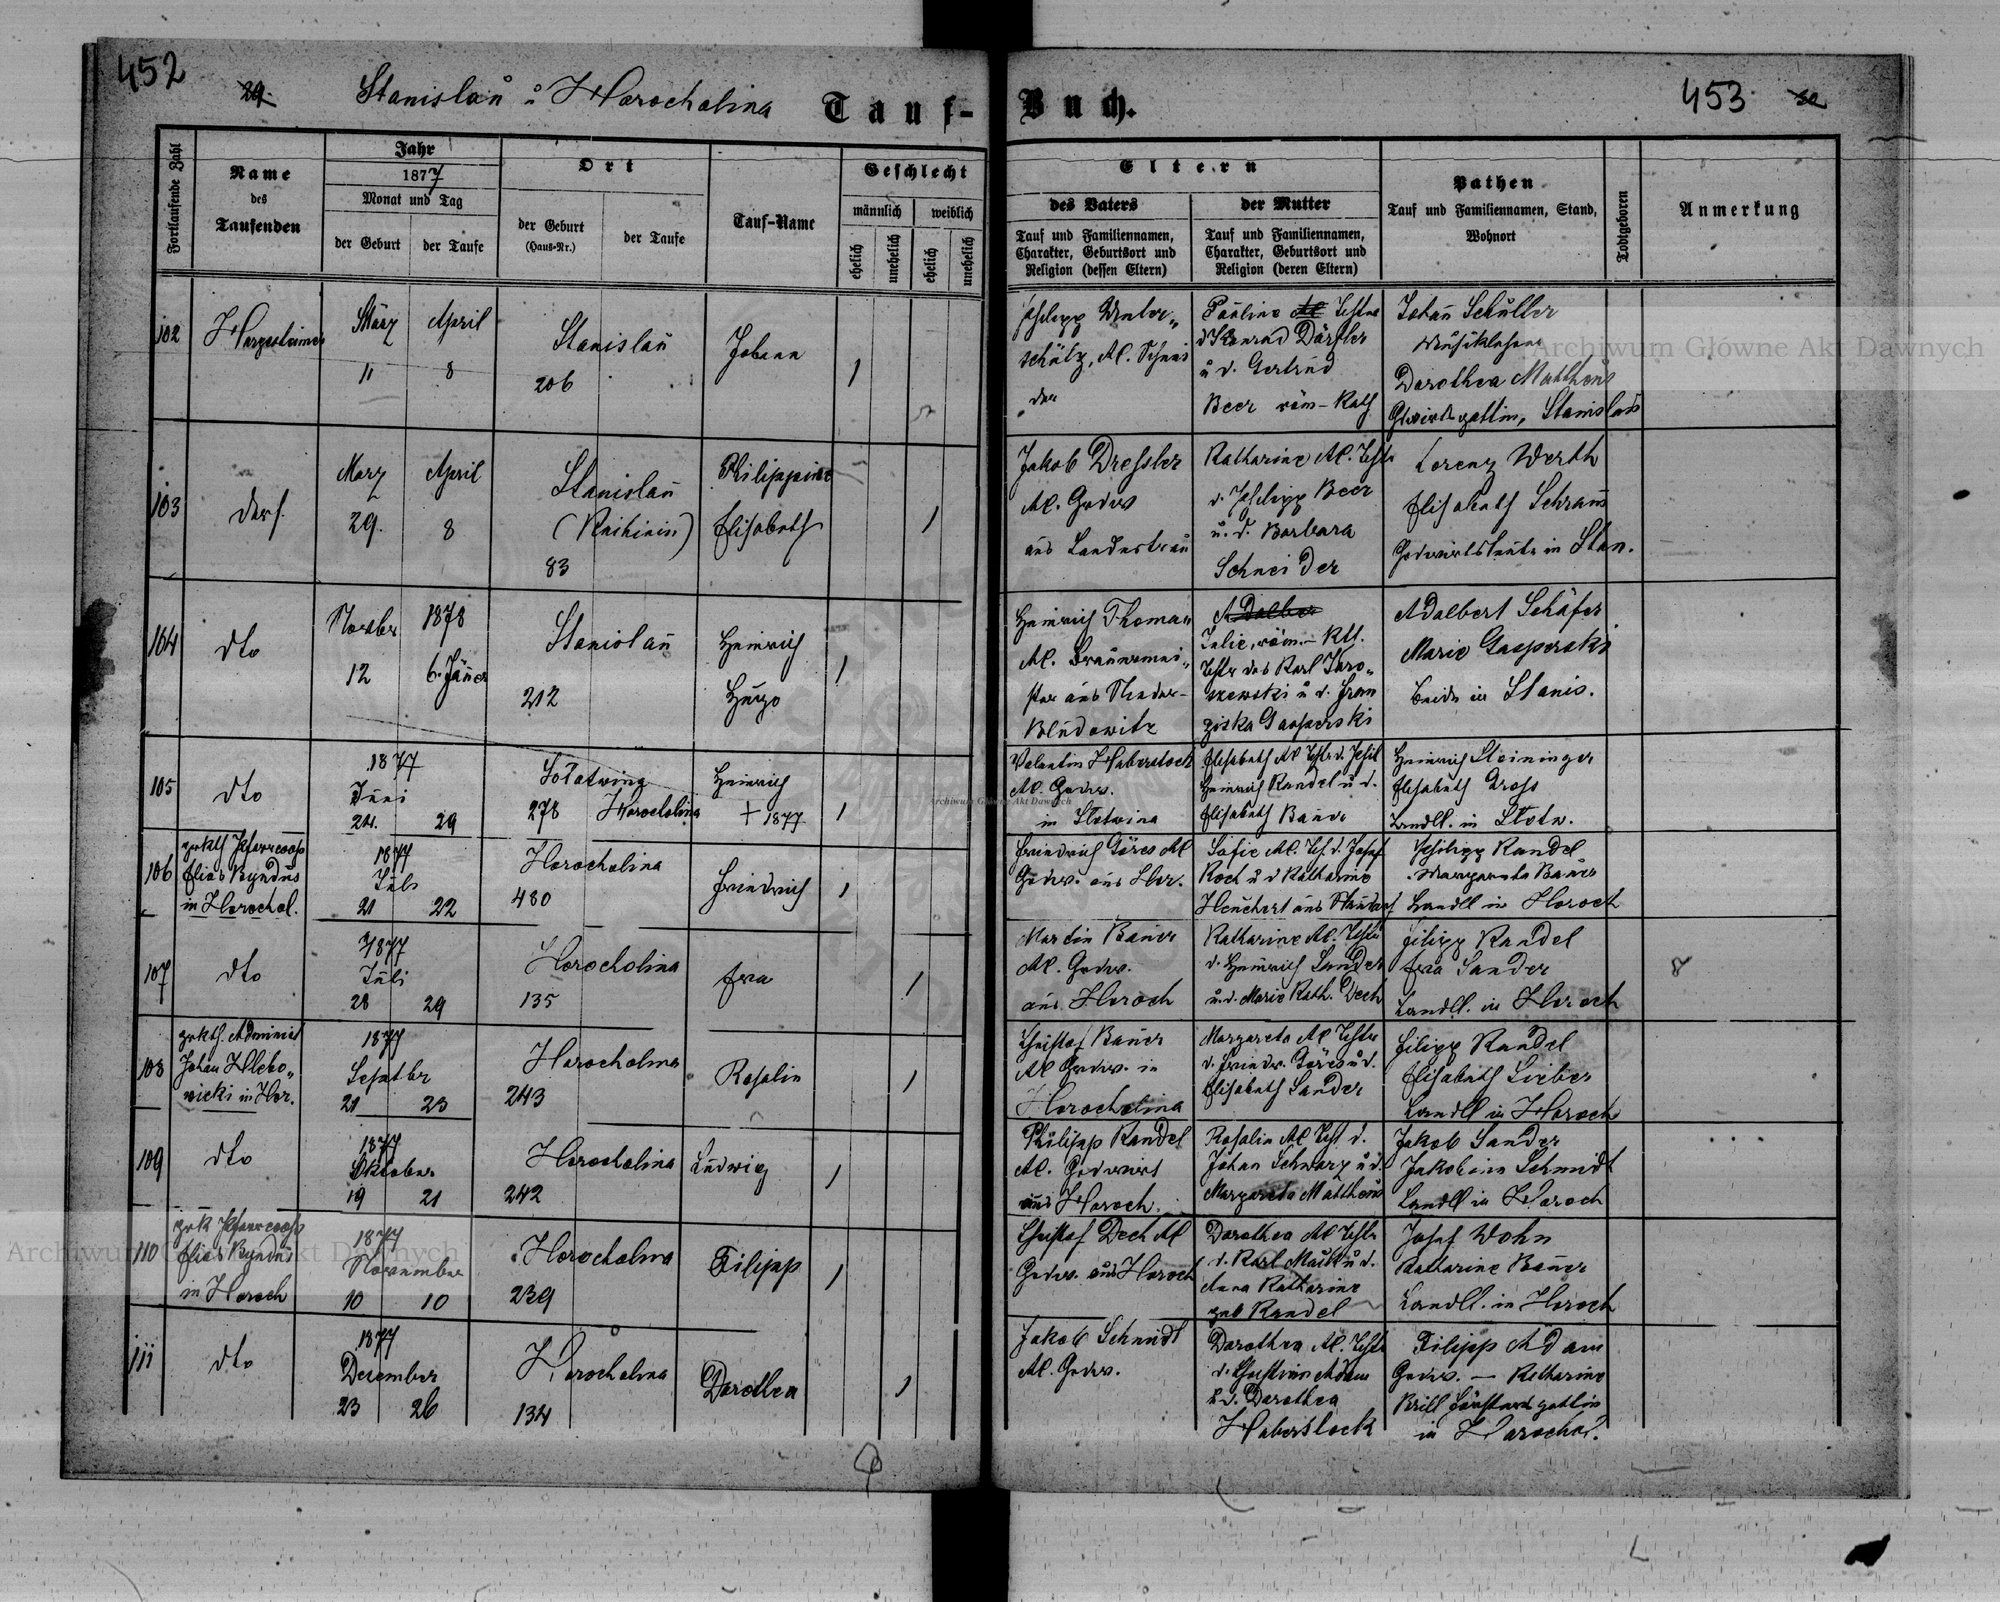 452
29.
Stanislaŭ ŭ Horocholina
Tauf-
Buch.
453
Fortlaufende Zahl
Name
des
Taufenden
Jahr
1877
Monat und Tag
der Geburt
der Taufe
Ort
der Geburt
(Haus-Nr.)
der Taufe
Tauf-Name
Geschlecht
männlich
weiblich
ehelich
unehelich
ehelich
unehelich
Eltern
des Vaters
Tauf und Familiennamen,
Charakter, Geburtsort und
Religion (dessen Eltern)
der Mutter
Tauf und Familiennamen,
Charakter, Geburtsort und
Religion (deren Eltern)
Pathen
Tauf und Familiennamen, Stand,
Wohnort
Todtgeboren
Anmerkung
102
März
April
11
8
Stanislaŭ
206
Johann
Philipp Unter„
schütz, AC. Schnei
der
Paŭline Tochter
d. Konrad Dörfler
ŭ d. Gertrŭd
Beer röm-Kath
Johañ Schŭller
Dorothea Mattheŭs
gattin, Stanislaŭ
103
Ders.
Marz
April
29.
8
Stanislaŭ
83
Philippine
Elisabeth
Jakob Dressler
AC. Grdw
aŭs Landestreŭ
Katharine AC. Tcht
d. Philipp Beer
ŭ. d. Barbara
Schneider
Lorenz Werth
Elisabeth Schram
Grdwirtsleŭte in Stan.
104
dto
Novbr
1878
12
6. Jäner
Stanislaŭ
212
Heinrich
Hŭgo
Heinrich Thoma„
AC. Braŭermei„
ster aŭs Nieder-
Blŭdowitz
Adalber
Julie, röm.-Kth.
Tchtr des Karl Jaro„
szewski ŭ d. Fran
ziska Gasperski
Adalbert Schäfer
Marie Gasperski
beide in Stanis.
105
dto
1877
Jŭni
24.
29
Sołotwina
278
Horocholina
Heinrich
+ 1877
Valentin Haberstock
AC. Grdw.
in Slotwina
Elisabeth AC Tchtr d.
Heinrich Randel ŭ d.
Elisabeth Baŭer
Heinrich Steininger
Elisabeth Gross
Landl. in Slotw.
106
grkth Pfarrcoop
Elias Byndŭs
in Horochol.
1877
Jŭli
21
22
Horocholina
480
Friedrich
Friedrich Göres AC
Grdw. aŭs Hor.
Sofie AC. Tch. d. Josef
Koch ŭ d Katharine
Heŭchert aŭs Neŭdorf
Philipp Randel
Margareta Baŭer
Landll in Horoch
107
dto
1877
Jŭli
28
29
Horocholina
135
Eva
Martin Baŭer
AC. Grdw.
aŭs Horoch
Katharine AC. Tchtr
d. Heinrich Sander
ŭ. d. Marie Kath. Dech
Filipp Randel
Eva Sander
Landll. in Horoch
108
grkth. Administ
Johan Hlebo„
wicki in Hor.
1877
Septbr
21
23
Horocholina
243
Rosalie
Christof Baŭer
AC Grdw. in
Horocholina
Margareta AC Tchtr
d. Friedr. Göres ŭ d.
Elisabeth Sander
Filipp Randel
Elisabeth Lieber
Landll in Horoch
109
dto
1877
Oktober
19
21
Horocholina
242
Lŭdwig
Philipp Randel
AC. Grdwirt
aŭs Horoch.
Rosalie AC Tcht d.
Johan Schwarz ŭ d.
Margareta Mattheŭs
Jakob Sander
Jakobine Schmidt
Landll in Horoch
110
grk Pfarrcoop
Elias Byndŭs
in Horoch
1877
November
10
10
Horocholina
239
Filipp
Christof Dech AC
Grdw. aŭs Horoch
Dorothea AC Tchtr
d. Karl Maŭk ŭ d.
Anna Katharine
geb Randel
Josef Wohn
Katharine Baŭer
Landll. in Horoch
111
dto
1877
Dezember
23
26
Horocholina
134
Dorothea
Jakob Schmidt
AC. Grdw.
Dorothea AC. Tchtr
d. Christian Adam
ŭ d. Dorothea
Haberstock
Filipp Adam
Grdw. — Katharine
Krill Försters gattin
in Horochol.
Archiwum Główne Akt Dawnych
Archiwum Główne Akt Dawnych
Archiwum Główne Akt Dawnych